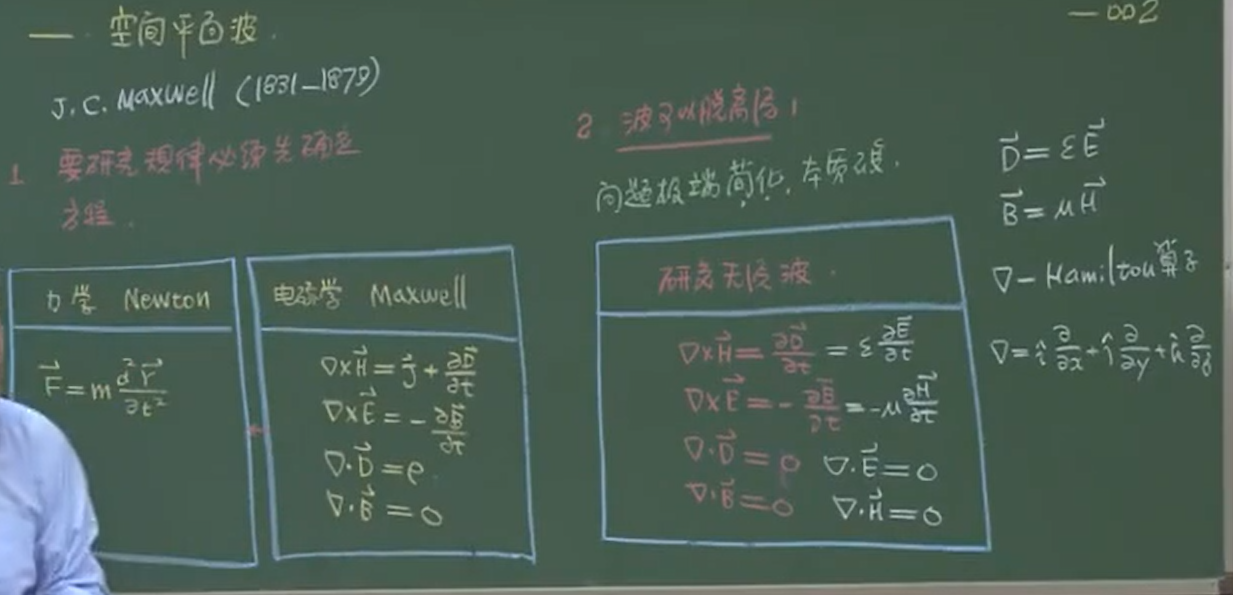 一. 空间平面波.
—002
J. C. Maxwell (1831—1879)
1 要研究规律必须先确定
方程.
力学 Newton
$\vec{F}=m\frac{d^2\vec{r}}{\partial t^2}$
电磁学 Maxwell
$\nabla\times\vec{H}=\vec{J}+\frac{\partial\vec{D}}{\partial t}$
$\nabla\times\vec{E}=-\frac{\partial\vec{B}}{\partial t}$
$\nabla\cdot\vec{D}=\rho$
$\nabla\cdot\vec{B}=0$
2 波可以脱离源,
问题极端简化,本质
研究无源波.
$\nabla\times\vec{H}=\frac{\partial\vec{D}}{\partial t}=\varepsilon\frac{\partial\vec{E}}{\partial t}$
$\nabla\times\vec{E}=-\frac{\partial\vec{B}}{\partial t}=-\mu\frac{\partial\vec{H}}{\partial t}$
$\nabla\cdot\vec{D}=0$ $\nabla\cdot\vec{E}=0$
$\nabla\cdot\vec{B}=0$ $\nabla\cdot\vec{H}=0$
$\vec{D}=\varepsilon\vec{E}$
$\vec{B}=\mu\vec{H}$
$\nabla$—Hamilton算子
$\nabla=\hat{i}\frac{\partial}{\partial x}+\hat{j}\frac{\partial}{\partial y}+\hat{k}\frac{\partial}{\partial z}$